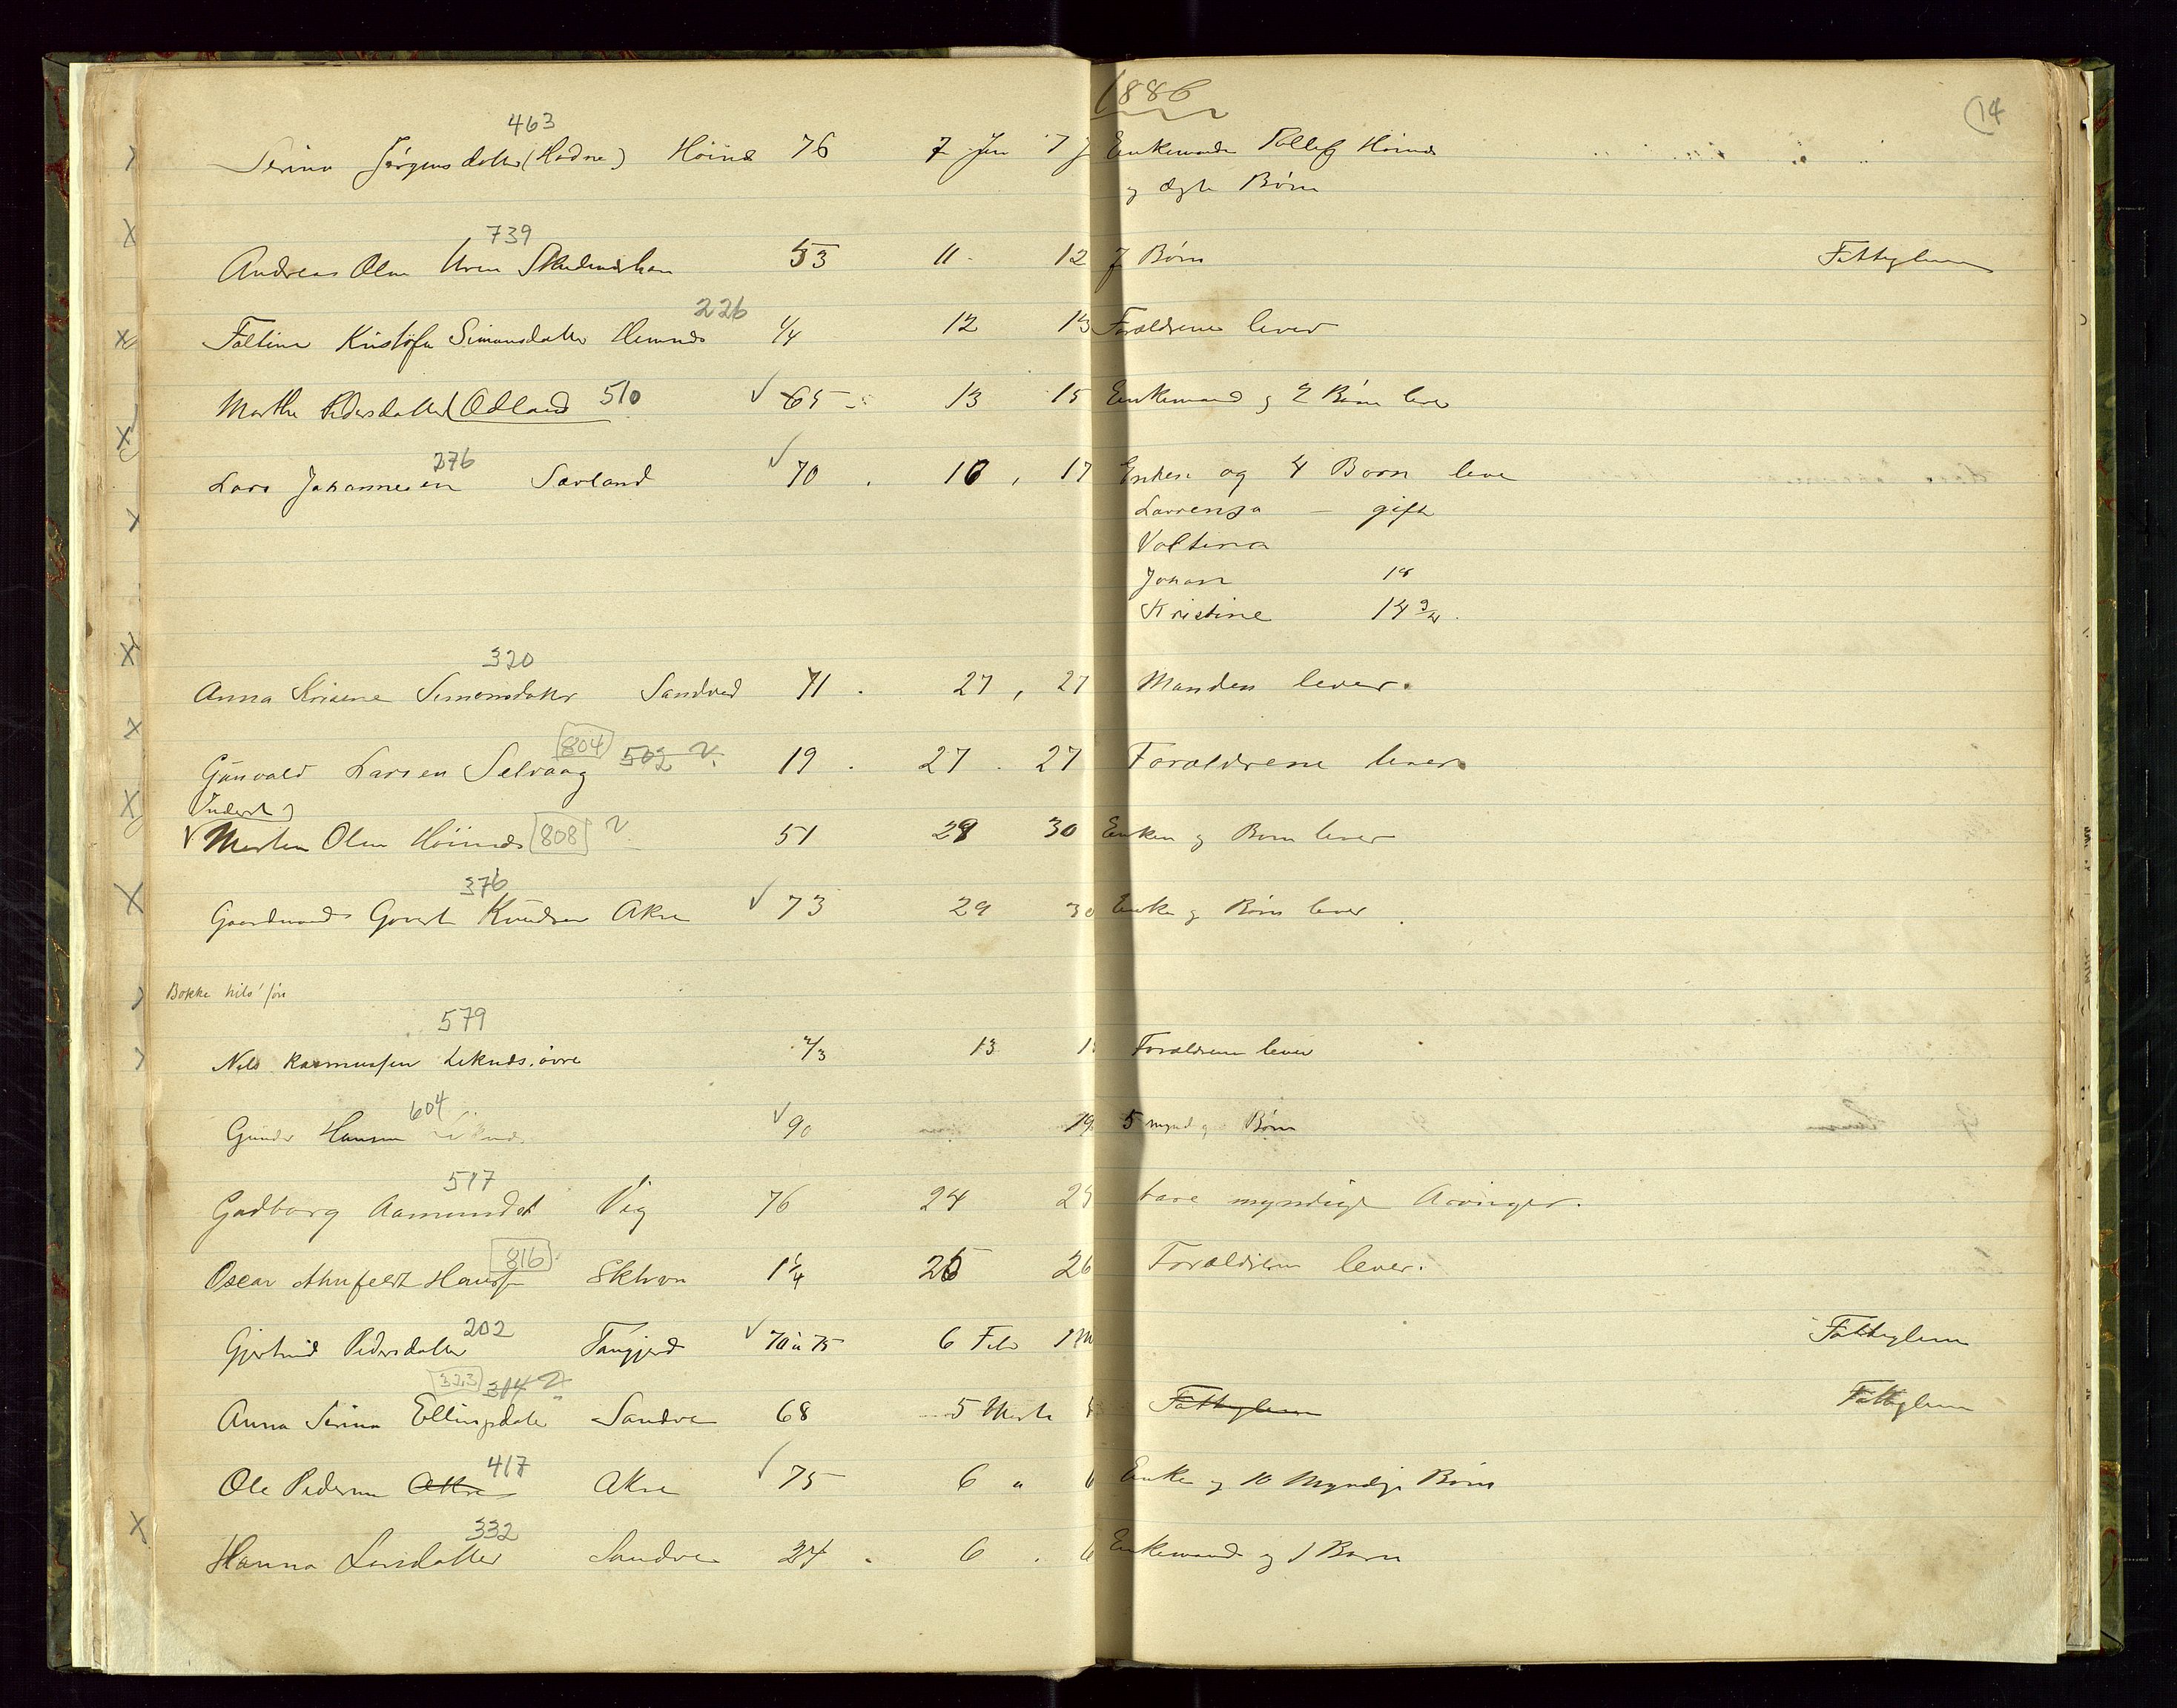 1886
14
463
Serina Jørgensdatter (Hadne) Höines 76 7 Jan 7 J Enkemande Tollefs Höines
og ægte Børn
739
Andreas Olsen Uren Skudeneshavn 53 11 12 7 Børn Fattiglem
226
Foltina Kristofa Simonsdatter Hemnes ¼ 12 13 Forældrene lever
Marthe Pedersdatter (Odland 510 65 13 15 Enkemand og 2 Børn lever
276
Lars Johannesen Sævland 70 16 17 Enken og 4 Børn leve
Lavrensa — gift
Voltina
Johan 18
Kristine 14
320
Anna Simonsdatter Sandved 71 27 27 Manden lever.
804 502
Gunvald Larsen Selvaag 19 27 27 Forældrene lever
Inderst
Morten Olsen Höines 808 51 29 30 Enken og Børn lever
376
Gaardmand Govert Knudsen Akre 73 29 30 Enke og Børn lever
Bokke
579
Nils Rasmussen Liknes, övre ⅔ 13 Forældrene lever
604
Gunder Hansen 90 19 5 mynd g Børn
517
Gudborg Aamundsd Vig 76 24 25 bare myndige Arvinger.
816
Oscar Ahnfeldt Hansen Skhavn 1¼ 26 26 Forældrene lever.
202
Gjertrud Pedersdatter Tangjerd 70 à 75 6 Feb 1 M Fattiglem
323 314
Anna Serina Ellingsdatter Sandve 68 5 Marts Fattiglem Fattiglem
417
Ole Pedersen Akre Akre 75 6 " 6 Enke og 10 Myndige Børn
332
Hanna Larsdatter Sandve 24 6 6 Enkemand og 1 Barn